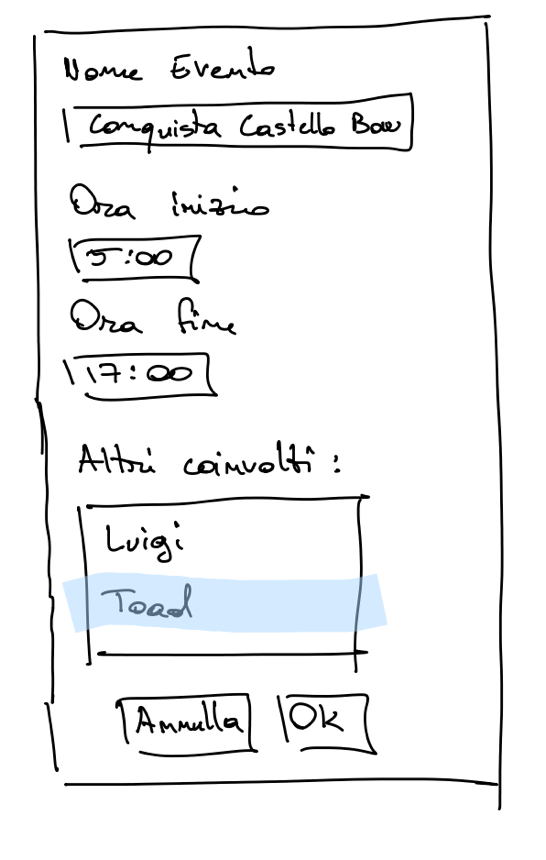 Nome Evento
Conquista Castello Bow
Ora inizio
5:00
Ora fine
17:00
Altri coinvolti:
Luigi
Toad
Annulla
OK